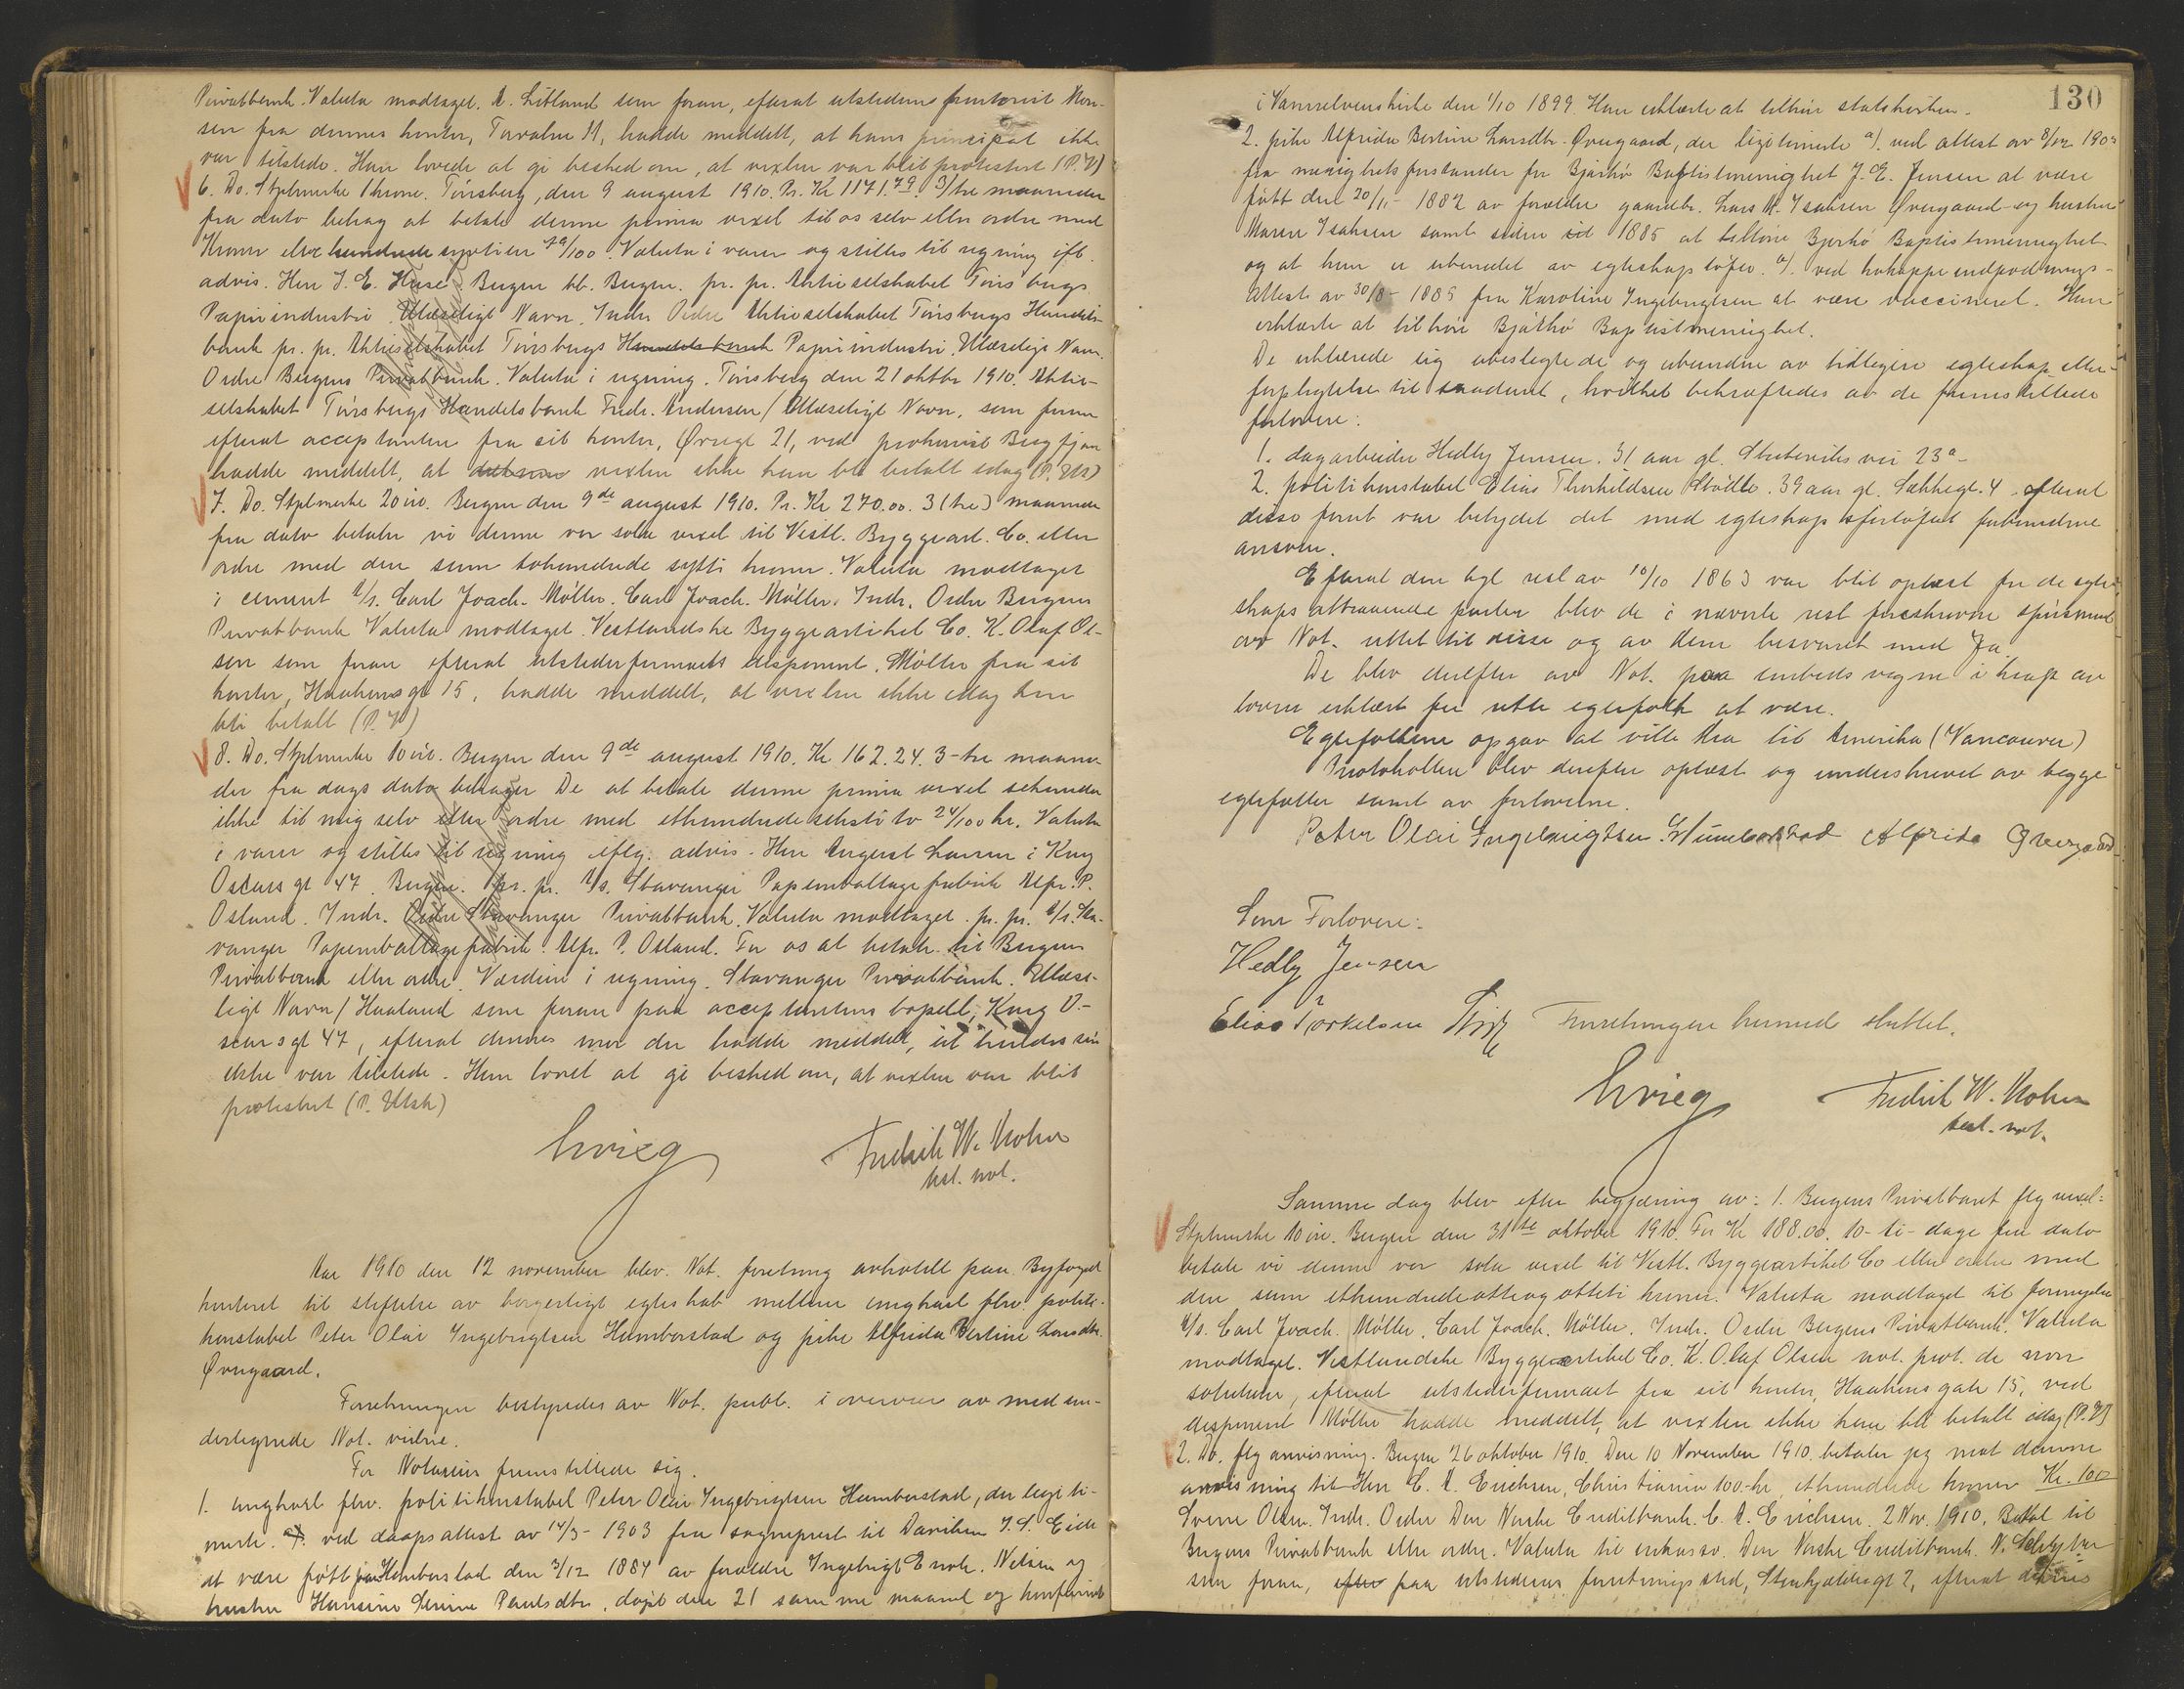 Privatbank. Valuta modtaget. A. Litland som foran, efterat utstederens prokurist Mon-
sen fra dennes kontor, Torvalm 11, hadde meddelt, at hans principal ikke
var tilstede. Han lovede at gi besked om, at vexlen var blit protestert (P. V)
6. Do. Stplmerke 1 krone. Tönsberg, den 9 august 1910. Pr. Kr 1171.79. 3/tre maaneder
fra dato behag at betale denne prima vexel til os selv eller ordre med
Kroner elve hundrede syttien 79/100. Valuta i varer og stilles til regning ifl.
advis. Herr J. E. Huse Bergen bb. Bergen. pr. pr. Aktieselskabet Tönsbergs
Papirindustri. Ulæseligt Navn. Indr. Ordre Aktieselskabet Tönsbergs Handels-
bank pr. pr. Aktieselskabet Tönsbergs Handelsbank Papirindustri. Ulæselige Navn.
Ordre Bergens Privatbank. Valuta i regning. Tönsberg den 21 oktbr 1910. Aktie-
selskabet Tönsbergs Handelsbank Fredr. Andersen / Ulæseligt Navn, som foran
efterat acceptanten fra sit kontor, Øvregt 21, ved prokurist Bergfjær
hadde meddelt, at vexlen ikke kan bli betalt idag (P. Uts)
7. Do. Stplmerke 20 öre. Bergen den 9de august 1910. Pr. Kr 270.00. 3 (tre) maaneder
fra dato betaler vi denne vor sola vexel til Vestl. Byggeart. Co. eller
ordre med den sum tohundrede sytti kroner. Valuta modtaget
i cement A/s. Carl Joach. Möller. Carl Joach. Möller. Indr. Ordre Bergens
Privatbank Valuta modtaget. Vestlandske Byggeartikel Co. K. Olaf Ol-
sen som foran efterat utstederfirmaets disponent. Möller fra sit
kontor, Haakonsgt 15, hadde meddelt, at vexlen ikke idag kan
bli betalt (P. V)
8. Do. Stplmerke 10 öre. Bergen den 9de august 1910. Kr 162.24. 3-tre maane-
der fra dags dato behager De at betale denne prima vexel sekunda
ikke til mig selv eller ordre med ethundredesekstito 24/100 kr. Valuta
i varer og stilles til regning iflg. advis. Herr August Larsen i Kong
Oscars gt 47. Bergen. pr. pr. A/s. Stavanger Papemballagefabrik Alfr. P.
Osland. Indr. Ordre Stavanger Privatbank. Valuta modtaget. pr. pr. A/s. Sta-
vanger Papemballagefabrik. Alfr. P. Osland. For os at betale til Bergens
Privatbank eller ordre. Værdien i regning. Stavanger Privatbank. Ulæse-
ligt Navn / Haaland som foran paa acceptantens bopæl, Kong O-
scars gt 47, efterat dennes mor der hadde meddelt, at hendes sön
ikke var tilstede. Hun lovet at gi besked om, at vexlen var blit
protestert (P. Utsk)
Krieg Fredrik W. Mohn
best. not.
Aar 1910 den 12 november blev. Not. forretning avholdt paa Byfoged
kontoret til stiftelse av borgerligt egteskab mellem ungkarl fhv. politi-
konstabel Peter Olai Ingebrigtsen Humborstad og pike Alfrida Bertine Larsdtr.
Øvregaard.
Forretningen bestyredes av Not. publ. i overvær av med un-
dertegnede Not. vidne.
For Notarius fremstillede sig.
1. ungkarl fhv. politikonstabel Peter Olai Ingebrigtsen Humborstad, der legiti-
merte. a). ved daapsattest av 14/3 - 1903 fra sogneprest til Daviken J. S. Eide
at være född paa Humborstad den 3/12 1884 av foreldre Ingebrigt Enok. Nilsen og
hustru Hansine Serine Paulsdtr, döpt den 21 samme maaned og konfirmert
130
i Vannelvens kirke den 1/10 1899. Han erklærte at tilhöre statskirken.
2. pike Alfrida Bertine Larsdtr. Øvregaard, der legitimerte a). ved attest av 8/12 190
fra menighetsforstander for Bjarkö Baptistmenighet J. E. Jensen at være
född den 20/11 - 1882 av foreldre gaardbr. Lars M. Isaksen Øvregaard og hustru
Maren Isaksen samt siden 1885 at tilhöre Bjerkö Baptistmenighet
og at hun er ubundet av egteskapslöfter. b). ved kokoppeindpodnings-
attest av 30/8 - 1885 fra Karoline Ingebrigtsen at være vaccineret. Hun
erklærte at tilhöre Bjarkö Baptistmenighet.
De erklærede sig ubeslegtede og ubundne av tidligere egteskap eller
forpligtelse til saadant, hvilket bekræftedes av de fremstillede
forlovere:
1. dagarbeider Hedly Jensen. 31 aar gl. Skuteviks vei 23a -
2. politikonstabel Elias Thorkildsen . 39 aar gl. Sækkegt. 4 - efterat
disse forut var betydet det med egteskapsforlöfter forbundne
ansvar.
Efterat den kgl resl av 10/10 1863 var blit oplæst for de egte-
skaps attraaende parter blev de i nævnte resl foreskrevne spörsmaal
av Not. rettet til disse og av dem besvaret med Ja.
De blev derefter av Not. paa embeds vegne i kraft av
loven erklært for rette egtefolk at være.
Egtefolkene opgav at ville dra til Amerika (Vancouver)
Protokollen blev derefter oplæst og underskrevet av begge
egtefæller samt av forloverne.
Peter Olai Ingebrigtsen Humborstad Alfrida Øvregaard
Som Forlovere:
Hedly Jensen
Elias Torkelsen Forretningen hermed sluttet.
Krieg Fredrik W. Mohn
best. not.
Samme dag blev efter begjæring av: 1. Bergens Privatbank flg vexel:
Stplmerke 10 öre. Bergen den 31te oktober 1910. For Kr 188.00. 10-ti-dage fra dato
betaler vi denne vor sola vexel til Vestl. Byggeartikel Co eller ordre med
den sum ethundredeotteogotteti kroner. Valuta modtaget til fornyelse
A/s. Carl Joach. Möller. Carl Joach. Möller. Indr. Ordre Bergens Privatbank. Valuta
modtaget. Vestlandske Byggeartikel Co. K. Olaf Olsen not. prot. de non
solutione, efterat utstederfirmaet fra sit kontor, Haakonsgate 15, ved
disponent Möller hadde meddelt, at vexlen ikke kan bli betalt idag (P. V)
2. Do. flg anvisning. Bergen 26 oktober 1910. Den 10 November 1910 betaler jeg mot denne
anvisning til Herr C. A. Erichsen, Christiania 100.-kr. ethundrede kroner Kr. 100
Sverre Olsen. Indr. Ordre Den Norske Creditbank. C. A. Erichsen. 2 Nov. 1910. Betal til
Bergens Privatbank eller ordre. Valuta til inkasso. Den Norske Creditbank. N. Schlytter
som foran, efter paa utstederens forretningssted, Strandgt 2, efterat dennes